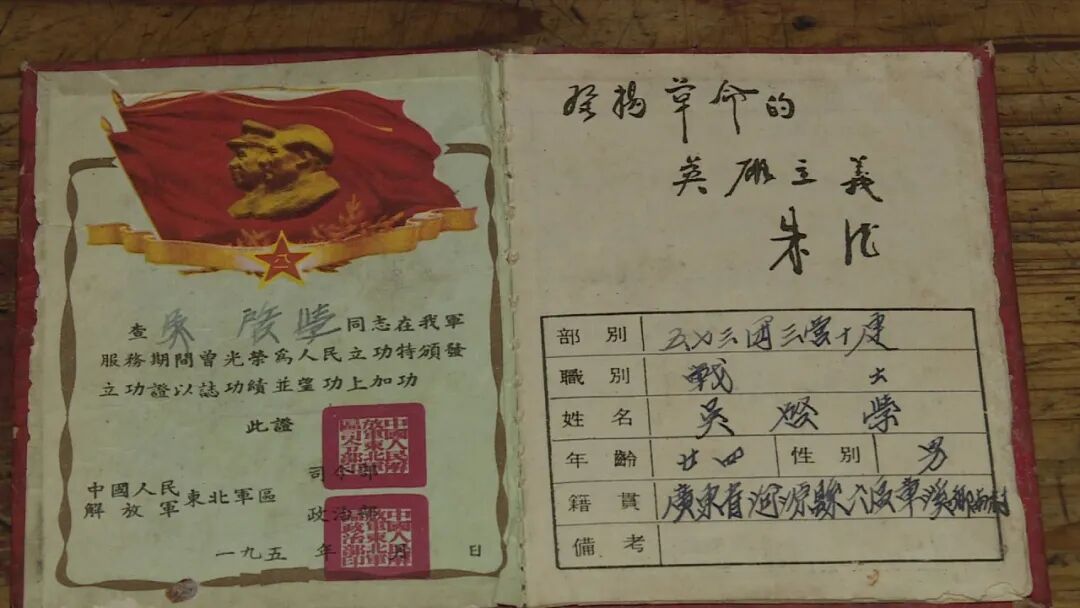 八一
查吳啟榮同志在我軍
服務期間曾光榮為人民立功特頒發
立功證以誌功績並望功上加功
此證
中國人民解放軍東北軍區司令部印
司令部
中國人民
解放軍東北軍區
政治部
中國人民解放軍東北軍區政治部印
一九五 年 月 日
發揚革命的
英雄主義
朱德
部別 五七三團三營十連
職別 戰士
姓名 吳啟榮
年齡 廿四 性別 男
籍貫 廣東省河源縣六區車溪鄉南村
備考